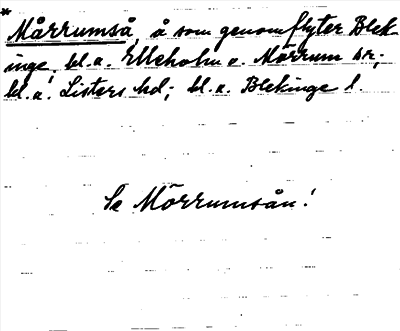 * Mårrumså, å som genomflyter Blek-
inge, bl. a. Elleholm o. Mörrum sr;
bl. a. Listers hd; bl. a. Blekinge l.
Se Mörrumsån!